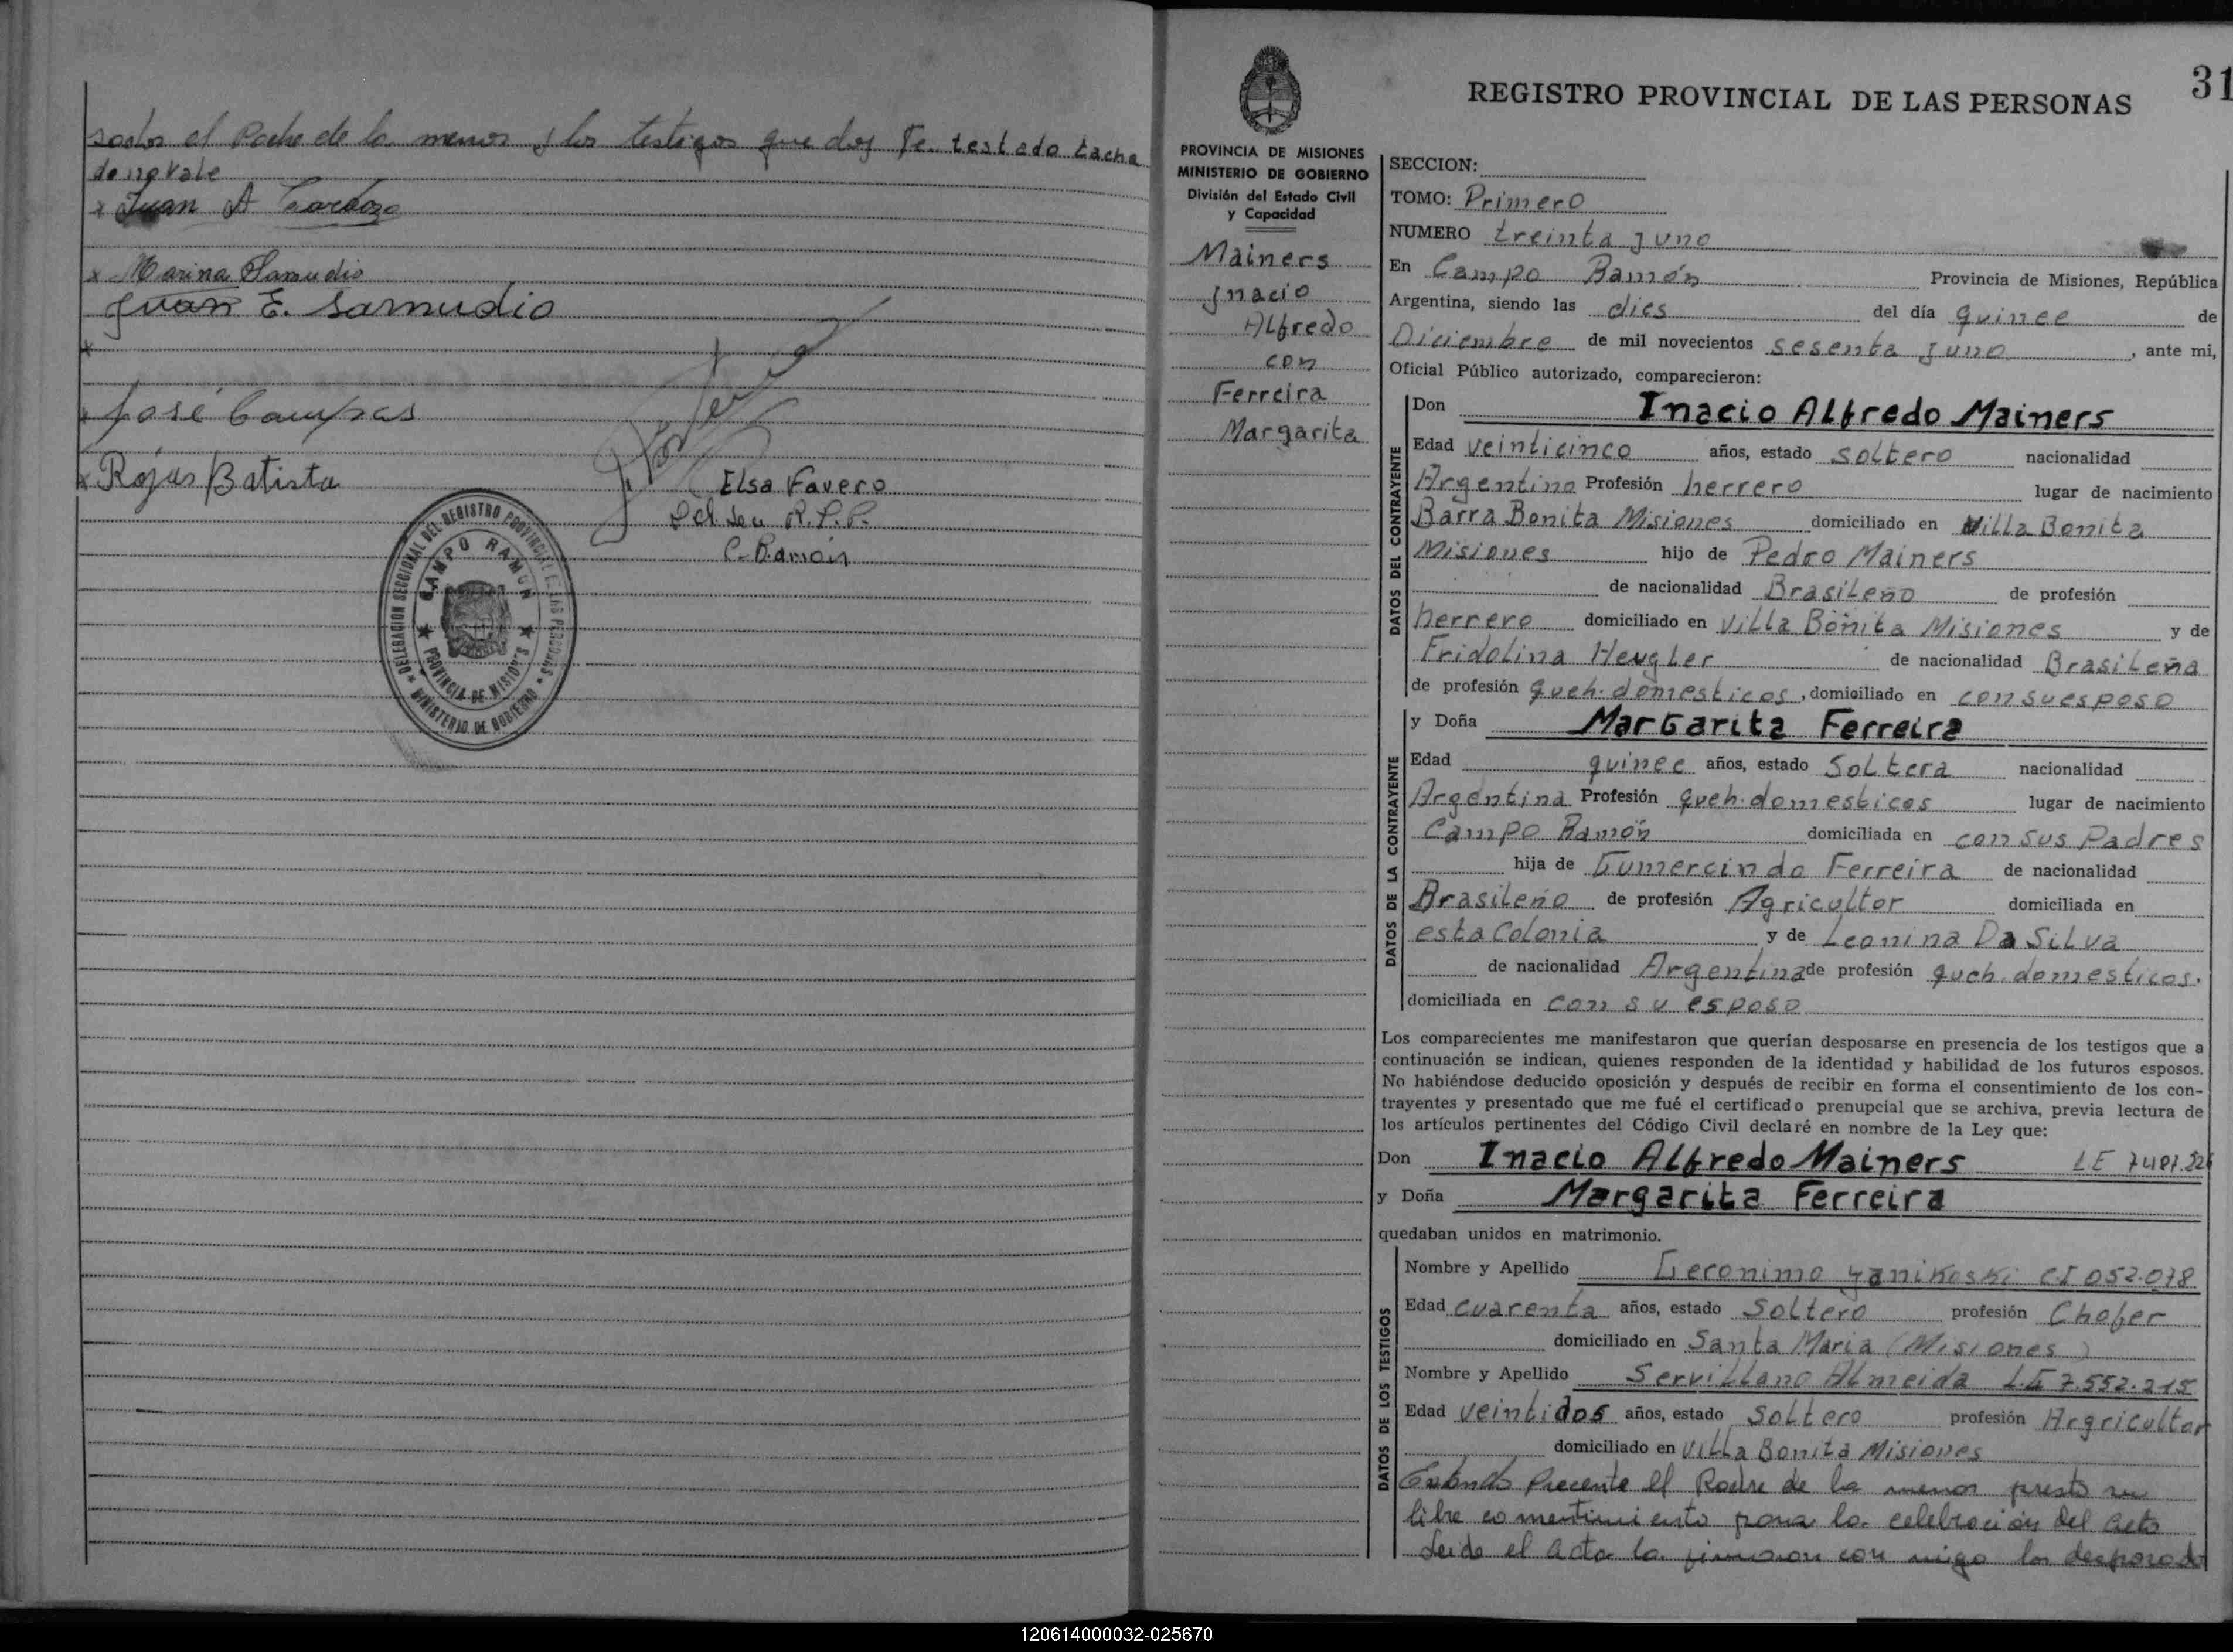 sados el Padre de la menor y los testigos que doy Fe. testado tacha
do no vale
x Juan A Cardozo
x Marina Samudio
Juan E. Samudio
x
x José Campos
x Rojas Batista
Elsa Favero
Del Sec R.P.P.
C. Ramón
DELEGACION SECCIONAL DEL REGISTRO PROVINCIAL DE LAS PERSONAS
CAMPO RAMON
PROVINCIA DE MISIONES
MINISTERIO DE GOBIERNO
31
REGISTRO PROVINCIAL DE LAS PERSONAS
PROVINCIA DE MISIONES
MINISTERIO DE GOBIERNO
División del Estado Civil
y Capacidad
Mainers
Inacio
Alfredo
con
Ferreira
Margarita
SECCION:
TOMO: Primero
NUMERO treinta y uno
En Campo Ramón Provincia de Misiones, República
Argentina, siendo las dies del día quince de
Diciembre de mil novecientos sesenta y uno, ante mi,
Oficial Público autorizado, comparecieron:
DATOS DEL CONTRAYENTE
Don Inacio Alfredo Mainers
Edad veinticinco años, estado soltero nacionalidad
Argentino Profesión herrero lugar de nacimiento
Barra Bonita Misiones domiciliado en Villa Bonita
Misiones hijo de Pedro Mainers
de nacionalidad Brasileño de profesión
herrero domiciliado en Villa Bonita Misiones y de
Fridolina Heugler de nacionalidad Brasileña
de profesión queh. domesticos, domiciliado en con su esposo
DATOS DE LA CONTRAYENTE
y Doña Margarita Ferreira
Edad quinee años, estado Soltera nacionalidad
Argentina Profesión queh. domesticos lugar de nacimiento
Campo Ramón domiciliada en con sus Padres
hija de Gumercindo Ferreira de nacionalidad
Brasileño de profesión Agricultor domiciliada en
esta Colonia y de Leonina Da Silva
de nacionalidad Argentina de profesión queh. domesticos.
domiciliada en con su esposo
Los comparecientes me manifestaron que querían desposarse en presencia de los testigos que a
continuación se indican, quienes responden de la identidad y habilidad de los futuros esposos.
No habiéndose deducido oposición y después de recibir en forma el consentimiento de los con-
trayentes y presentado que me fué el certificado prenupcial que se archiva, previa lectura de
los artículos pertinentes del Código Civil declaré en nombre de la Ley que:
Don Inacio Alfredo Mainers LE
y Doña Margarita Ferreira
quedaban unidos en matrimonio.
DATOS DE LOS TESTIGOS
Nombre y Apellido Geronimo Yanikoski C.I 052.078
Edad cuarenta años, estado Soltero profesión Chofer
domiciliado en Santa Maria (Misiones)
Nombre y Apellido Servillano Almeida L.E 7.552.215
Edad veintidos años, estado Soltero profesión Argricultor
domiciliado en Villa Bonita Misiones
Estando Precente el Padre de la menor presto su
libre consentimiento para la celebración del acto
Leido el acta la firmaron con migo los desposado
120614000032-025670